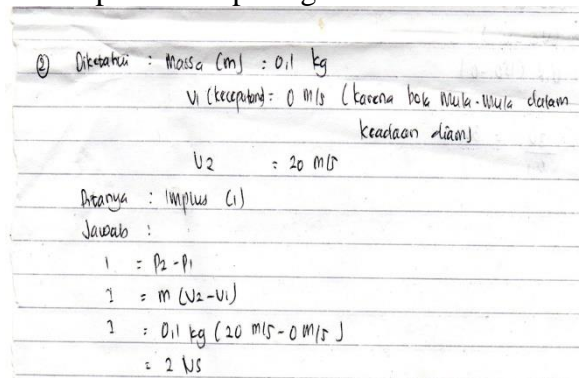 ② Diketahui : Massa (m) : 0,1 kg
V1 (kecepatan) = 0 m/s (karena bola mula-mula dalam
keadaan diam)
V2 : 20 m/s
Ditanya : Implus (I)
Jawab :
I = P2 - P1
I = m (V2 - V1)
I : 0,1 kg (20 m/s - 0 m/s)
= 2 NS